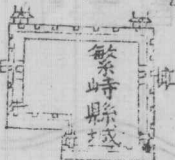 繁峙縣城